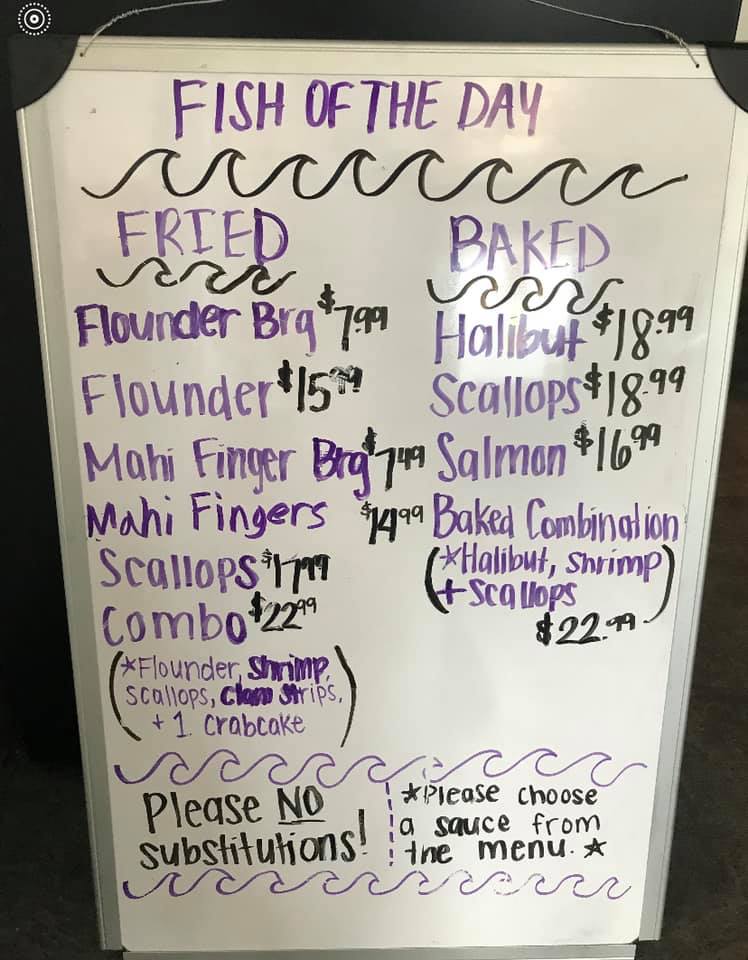 FISH OF THE DAY
FRIED
Flounder Brg $7.99
Flounder $15.99
Mahi Finger Brg $7.49
Mahi Fingers $14.99
Scallops $17.99
Combo $22.99
(*Flounder, shrimp,
scallops, clam strips,
+ 1 crabcake)
BAKED
Halibut $18.99
Scallops $18.99
Salmon $16.99
Baked Combination
(*Halibut, shrimp
+ Scallops)
$22.99
Please NO
substitutions!
*Please choose
a sauce from
the menu.*